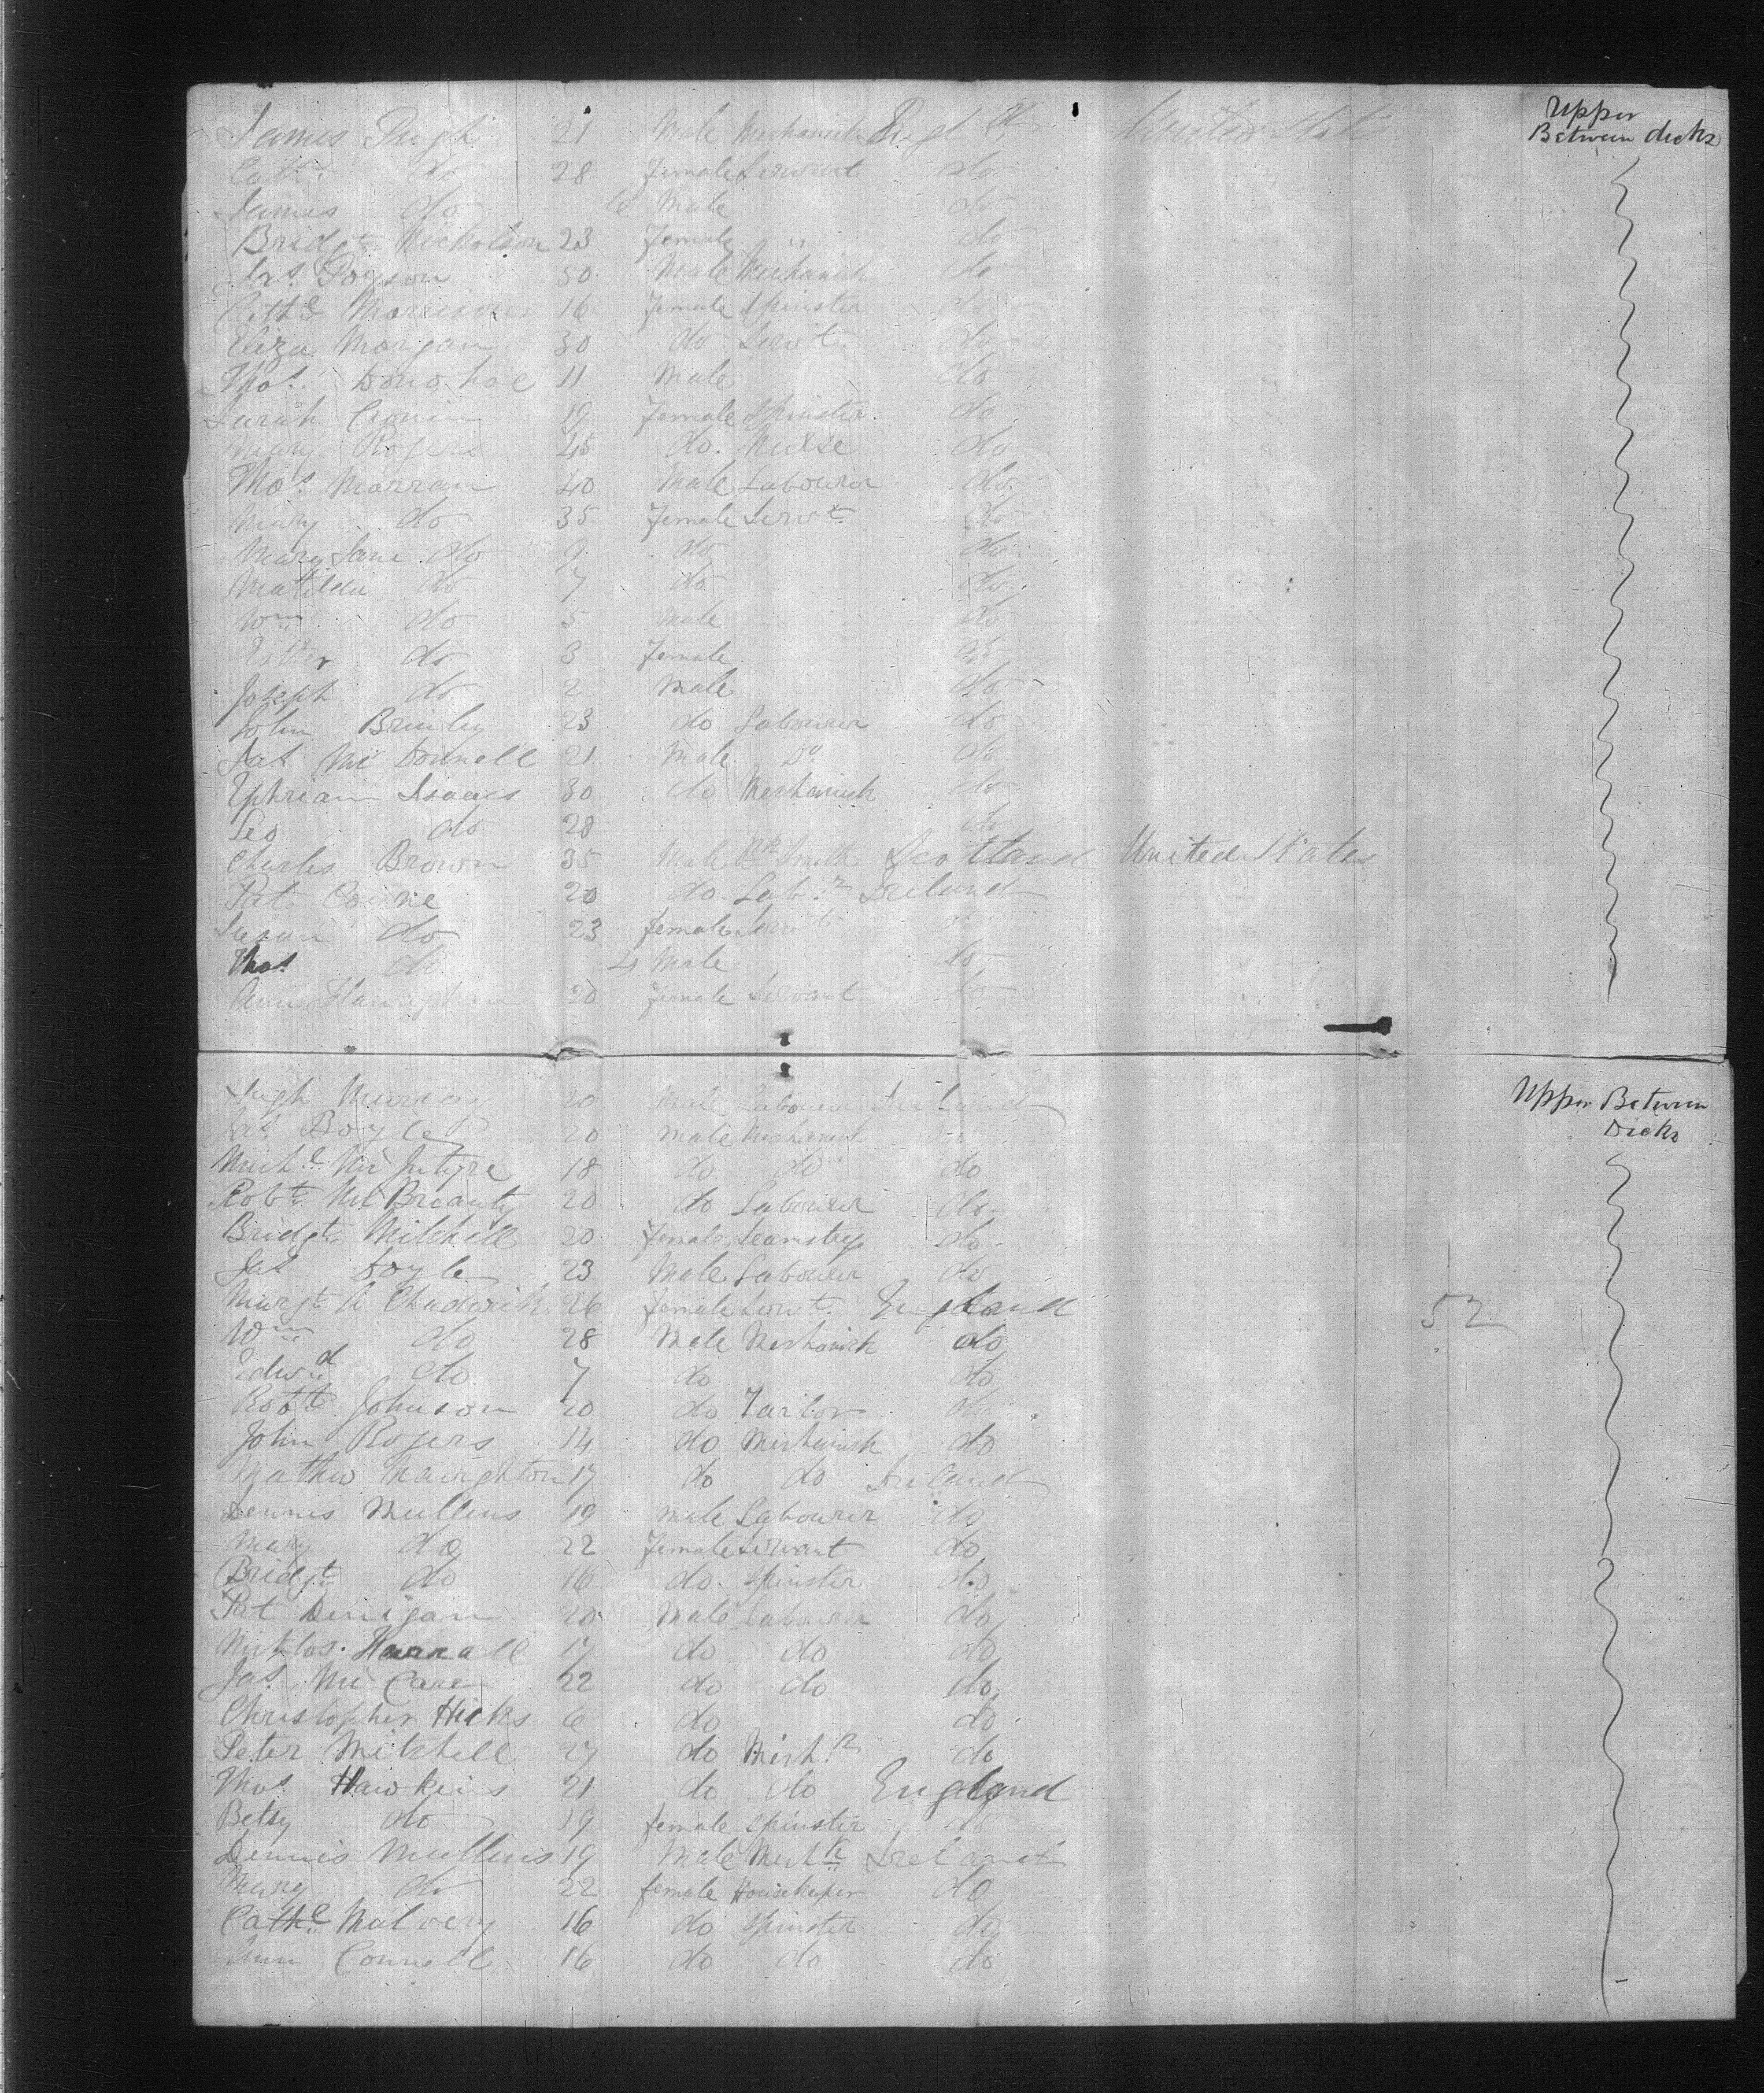 Upper
Between decks
James Pugh 21 Male Mechanick United States
do 28 Female Servant do
James do 6 Male do
Bridgt Nicholson 23 Female " do
Jas. 50 Male Mechanick do
Cathe Morrison 16 Female Spinster do
Eliza Morgan 30 do Servt. do
Thos. Donohoe 11 Male do
Sarah Cronin 19 Female Spinster do
Mary Rogers 45 do. Nurse do
Thos. Marran 40 Male Labourer do
Mary do 35 Female Servt. do
Mary Jane do 9 do do
Matilda do 7 do do
Wm do 5 Male do
Esther do 3 Female do
Joseph do 2 Male do
John Brinley 23 do Labourer do
Jas Mc Donnell 21 Male Do do
Ephriam Isaacs 30 do Mechanick do
Geo do 28 do
Charles Brown 35 Male Bk Smith Scotland United States
Pat Coine 20 do. Labr. Ireland
Susan do 23 Female Servt
Thos. do 4 Male do
Ann Flanaghan 20 Female Servant do
Upper Between
Decks
Hugh Murray 20 Male Labourer Ireland
Jas. Boyle 20 Male Mechanick
Miche. Mc Intyre 18 do do do
Robt. Mc Brianty 20 do Labourer do
Bridgt. Mitchell 20 Female Seamstress do
Jas Doyle 23 Male Labourer do
Margt. A Chadwick 26 Female Servt. England
52
Wm do 28 Male Mechanick do
Edwd do 7 do do
Robt. Johnson 20 do Tailor do
John Rogers 14 do Mechanick do
Mathw Naughton 17 do do Ireland
Dennis Mullens 19 Male Labourer do
Mary do 22 Female Servant do
Bridgt do 16 do. Spinster do
Pat Dinigan 20 Male Labourer do
Nicklos. Harrall 17 do do do
Jas. Mc Care 22 do do do
Christopher Hicks 6 do do
Peter Mitchell 27 do Mech. do
Thos. Hawkins 21 do do England
Betsy do 19 female Spinster do
Dennis Mullens 19 Male Mechk Ireland
Mary do 22 female Housekeeper do
Cathe Malvery 16 do Spinster do
Ann Connell 16 do do do